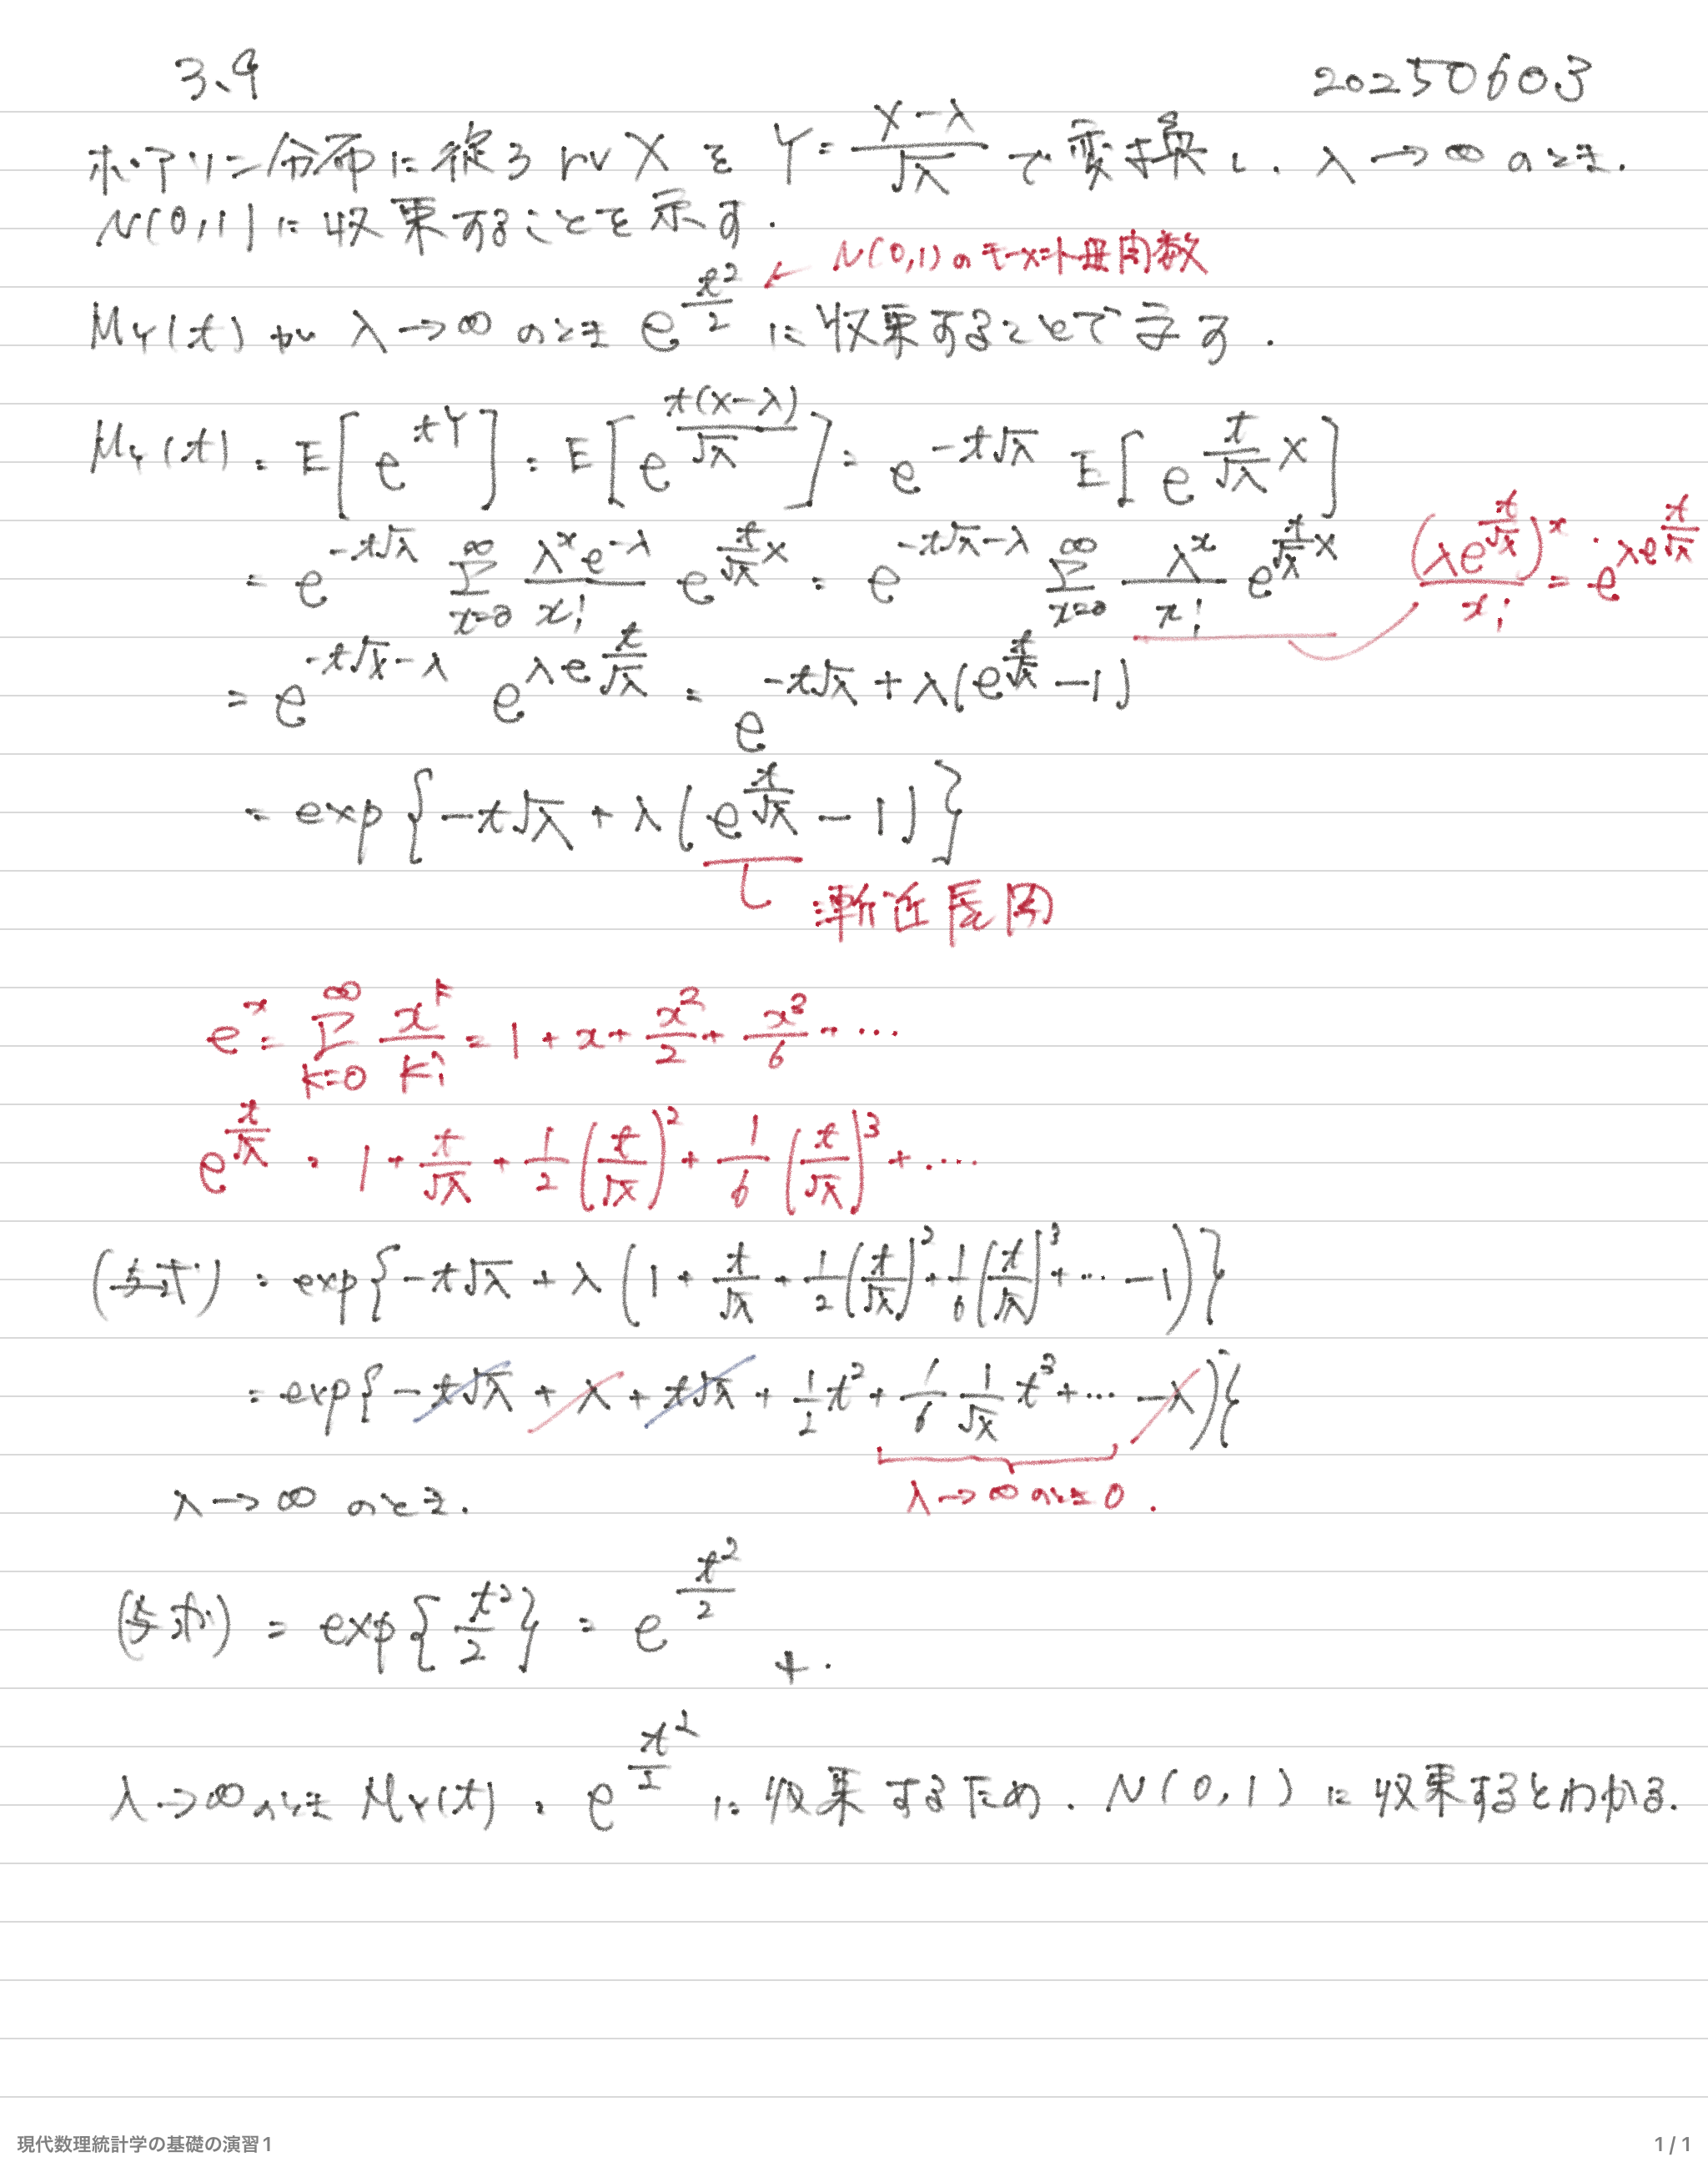 3.9 20250603
ポアソン分布に従う rv X を Y = \frac{X-λ}{\sqrt{λ}} で変換し、λ→∞ のとき、
N(0,1) に収束することを示す.
← N(0,1) のモーメント母関数
M_Y(t) が λ→∞ のとき e^{\frac{t^2}{2}} に収束することで示す.
M_Y(t) = E[e^{tY}] = E[e^{\frac{t(X-λ)}{\sqrt{λ}}}] = e^{-t\sqrt{λ}} E[e^{\frac{t}{\sqrt{λ}}X}]
= e^{-t\sqrt{λ}} \sum_{x=0}^{∞} \frac{λ^x e^{-λ}}{x!} e^{\frac{t}{\sqrt{λ}}x} = e^{-t\sqrt{λ}-λ} \sum_{x=0}^{∞} \frac{λ^x}{x!} e^{\frac{t}{\sqrt{λ}}x} \frac{(λe^{\frac{t}{\sqrt{λ}}})^x}{x!} = e^{λe^{\frac{t}{\sqrt{λ}}}}
= e^{-t\sqrt{λ}-λ} e^{λe^{\frac{t}{\sqrt{λ}}}} = e^{-t\sqrt{λ}+λ(e^{\frac{t}{\sqrt{λ}}}-1)}
= exp{-t\sqrt{λ} + λ(e^{\frac{t}{\sqrt{λ}}} - 1)}
漸近展開
e^x = \sum_{k=0}^{∞} \frac{x^k}{k!} = 1 + x + \frac{x^2}{2} + \frac{x^3}{6} + ...
e^{\frac{t}{\sqrt{λ}}} = 1 + \frac{t}{\sqrt{λ}} + \frac{1}{2}(\frac{t}{\sqrt{λ}})^2 + \frac{1}{6}(\frac{t}{\sqrt{λ}})^3 + ....
(与式) = exp{-t\sqrt{λ} + λ(1 + \frac{t}{\sqrt{λ}} + \frac{1}{2}(\frac{t}{\sqrt{λ}})^2 + \frac{1}{6}(\frac{t}{\sqrt{λ}})^3 + ... - 1)}
= exp{-t\sqrt{λ} + λ + t\sqrt{λ} + \frac{1}{2}t^2 + \frac{1}{6}\frac{1}{\sqrt{λ}}t^3 + ... - λ)}
λ→∞ のとき 0.
λ→∞ のとき.
(与式) = exp{\frac{t^2}{2}} = e^{\frac{t^2}{2}}
λ→∞ のとき M_Y(t) = e^{\frac{t^2}{2}} に収束するため. N(0,1) に収束するとわかる.
現代数理統計学の基礎の演習1 1 / 1